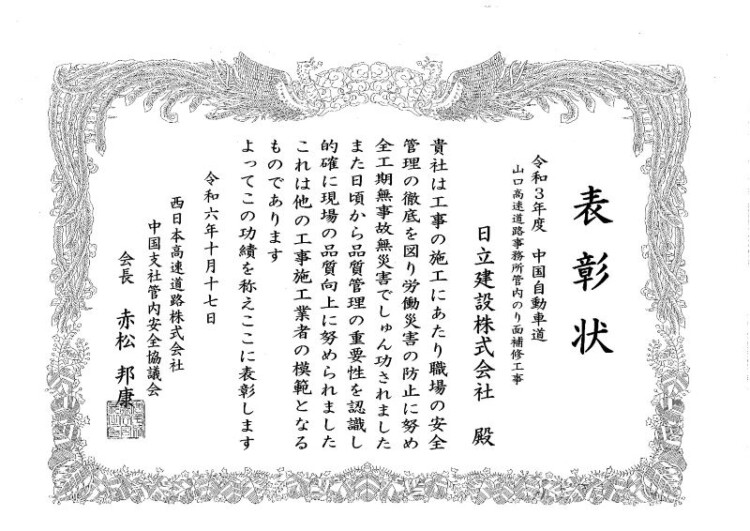 表彰状
令和3年度　中国自動車道
山口高速道路事務所管内のり面補修工事
日立建設株式会社　殿
貴社は工事の施工にあたり職場の安全
管理の徹底を図り労働災害の防止に努め
全工期無事故無災害でしゅん功されました
また日頃から品質管理の重要性を認識し
的確に現場の品質向上に努められました
これは他の工事施工業者の模範となる
ものであります
よってこの功績を称えここに表彰します
令和六年十月十七日
西日本高速道路株式会社
中国支社管内安全協議会
会長　赤松　邦康